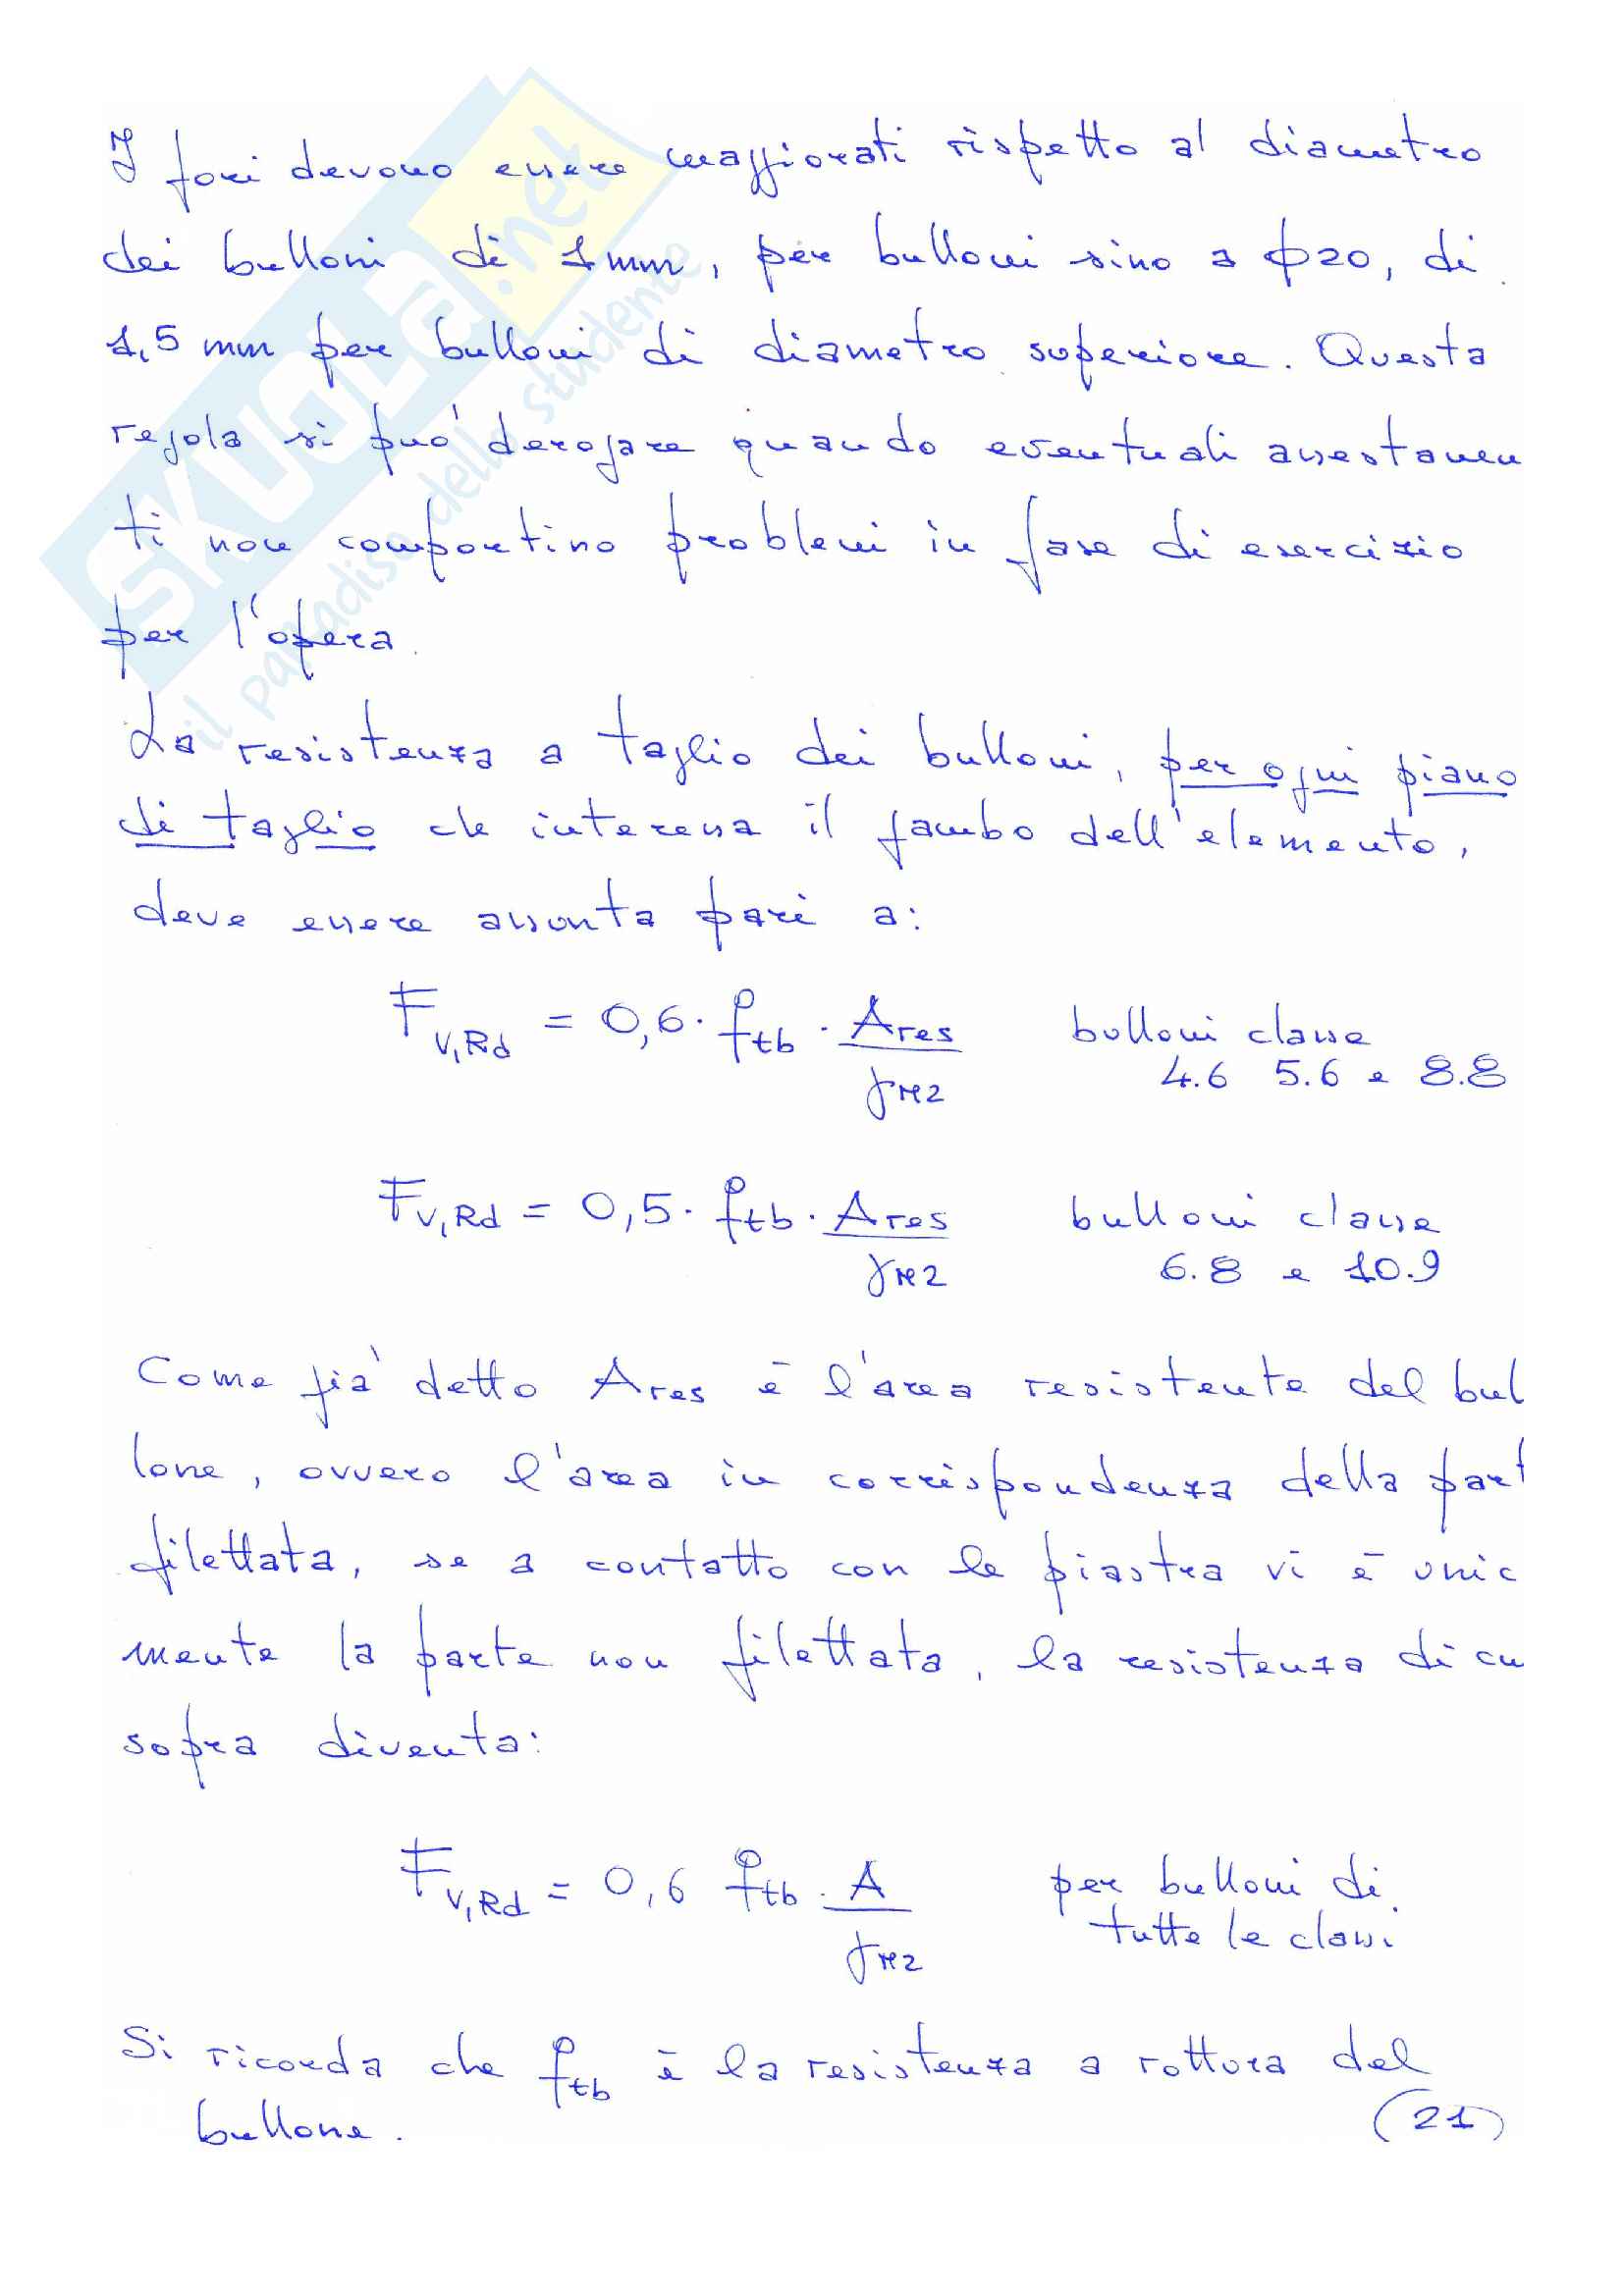 I fori devono essere maggiorati rispetto al diametro
dei bulloni di 1mm, per bulloni sino a ϕ20, di
1,5 mm per bulloni di diametro superiore. Questa
regola si può derogare quando eventuali assestamen
ti non comportino problemi in fase di esercizio
per l'opera.
La resistenza a taglio dei bulloni, per ogni piano
di taglio che interessa il gambo dell'elemento,
deve essere assunta pari a:
F_{v,Rd} = 0,6 · f_{tb} · A_{res} / γ_{M2} bulloni classe
4.6 5.6 e 8.8
F_{v,Rd} = 0,5 · f_{tb} · A_{res} / γ_{M2} bulloni classe
6.8 e 10.9
Come già detto A_{res} è l'area resistente del bul
lone, ovvero l'area in corrispondenza della part
filettata, se a contatto con le piastra vi è unic
mente la parte non filettata, la resistenza di cu
sopra diventa:
F_{v,Rd} = 0,6 f_{tb} · A / γ_{M2} per bulloni di
tutte le classi.
Si ricorda che f_{tb} è la resistenza a rottura del
bullone.
(21)
SKUOLA.net
il paradiso dello studente